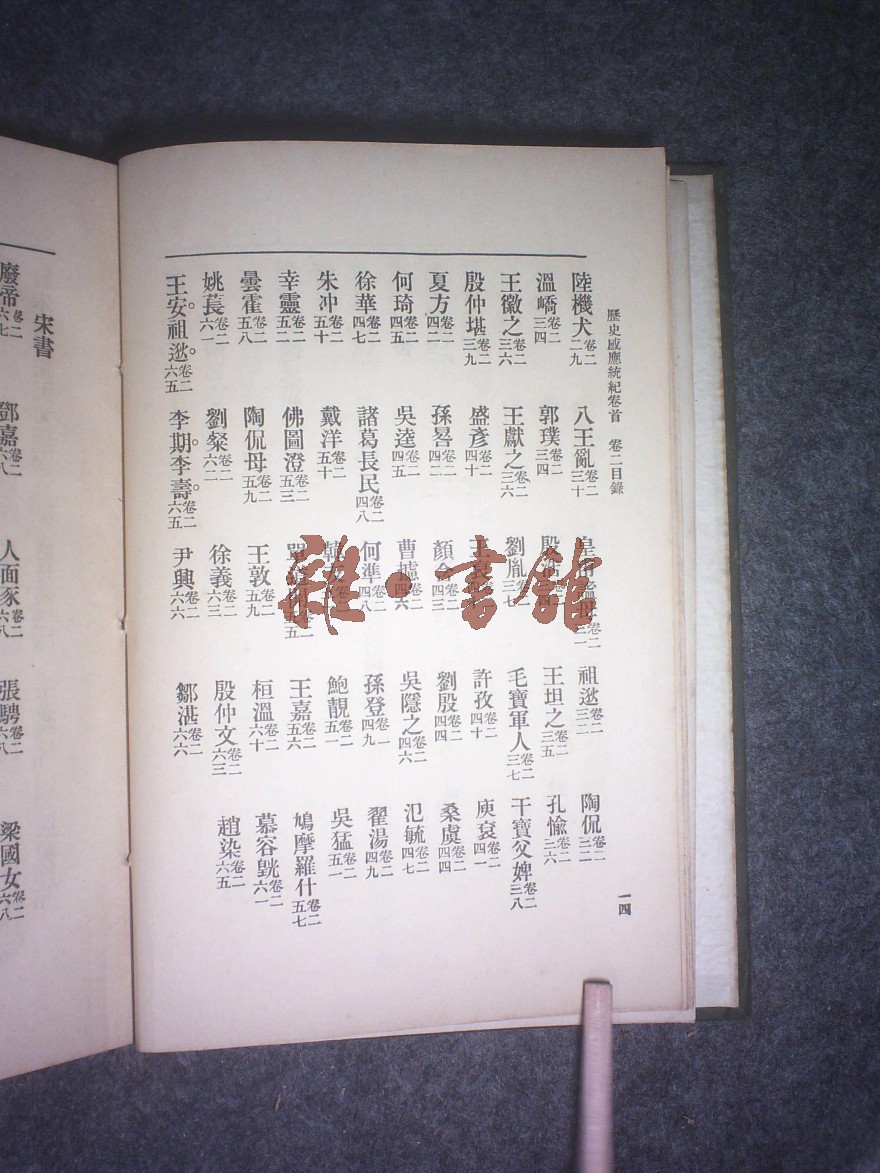 歷史感應統紀卷首 卷二目錄 一四
陸機犬卷二二九 八王亂卷二三十 皇甫謐母卷二三一 祖逖卷二三二 陶侃卷二三二
溫嶠卷二三四 郭璞卷二三四 殷浩 王坦之卷二三五 孔愉卷二三六
王徽之卷二三六 王獻之卷二三六 劉胤卷二三七 毛寶軍人卷二三七 干寶父婢卷二三八
殷仲堪卷二三九 盛彥卷二四十 王裒 許孜卷二四十 庾袞卷二四一
夏方卷二四二 孫晷卷二四二 顏含卷二四三 劉殷卷二四四 桑虞卷二四四
何琦卷二四五 吳逵卷二四五 曹攄卷二四六 吳隱之卷二四六 氾毓卷二四七
徐華卷二四七 諸葛長民卷二四八 何準卷二四八 孫登卷一四九 翟湯卷二四九
朱冲卷二五十 戴洋卷二五十 韓友 鮑靚卷二五一 吳猛卷二五一
幸靈卷二五二 佛圖澄卷二五三 單道開卷二五五 王嘉卷二五六 鳩摩羅什卷二五七
曇霍卷二五八 陶侃母卷二五九 王敦卷二五九 桓溫卷二六十 慕容皝卷二六一
姚萇卷二六一 劉粲卷二六二 徐義卷二六三 殷仲文卷二六三 趙染卷二六五
王安。祖逖。卷二六五 李期。李壽。卷二六五 尹興卷二六六 鄒湛卷二六六
宋書
廢帝卷二六七 鄧嘉卷二六八 人面豕卷二六八 張騁卷二六八 梁國女卷二六八
雜·書館